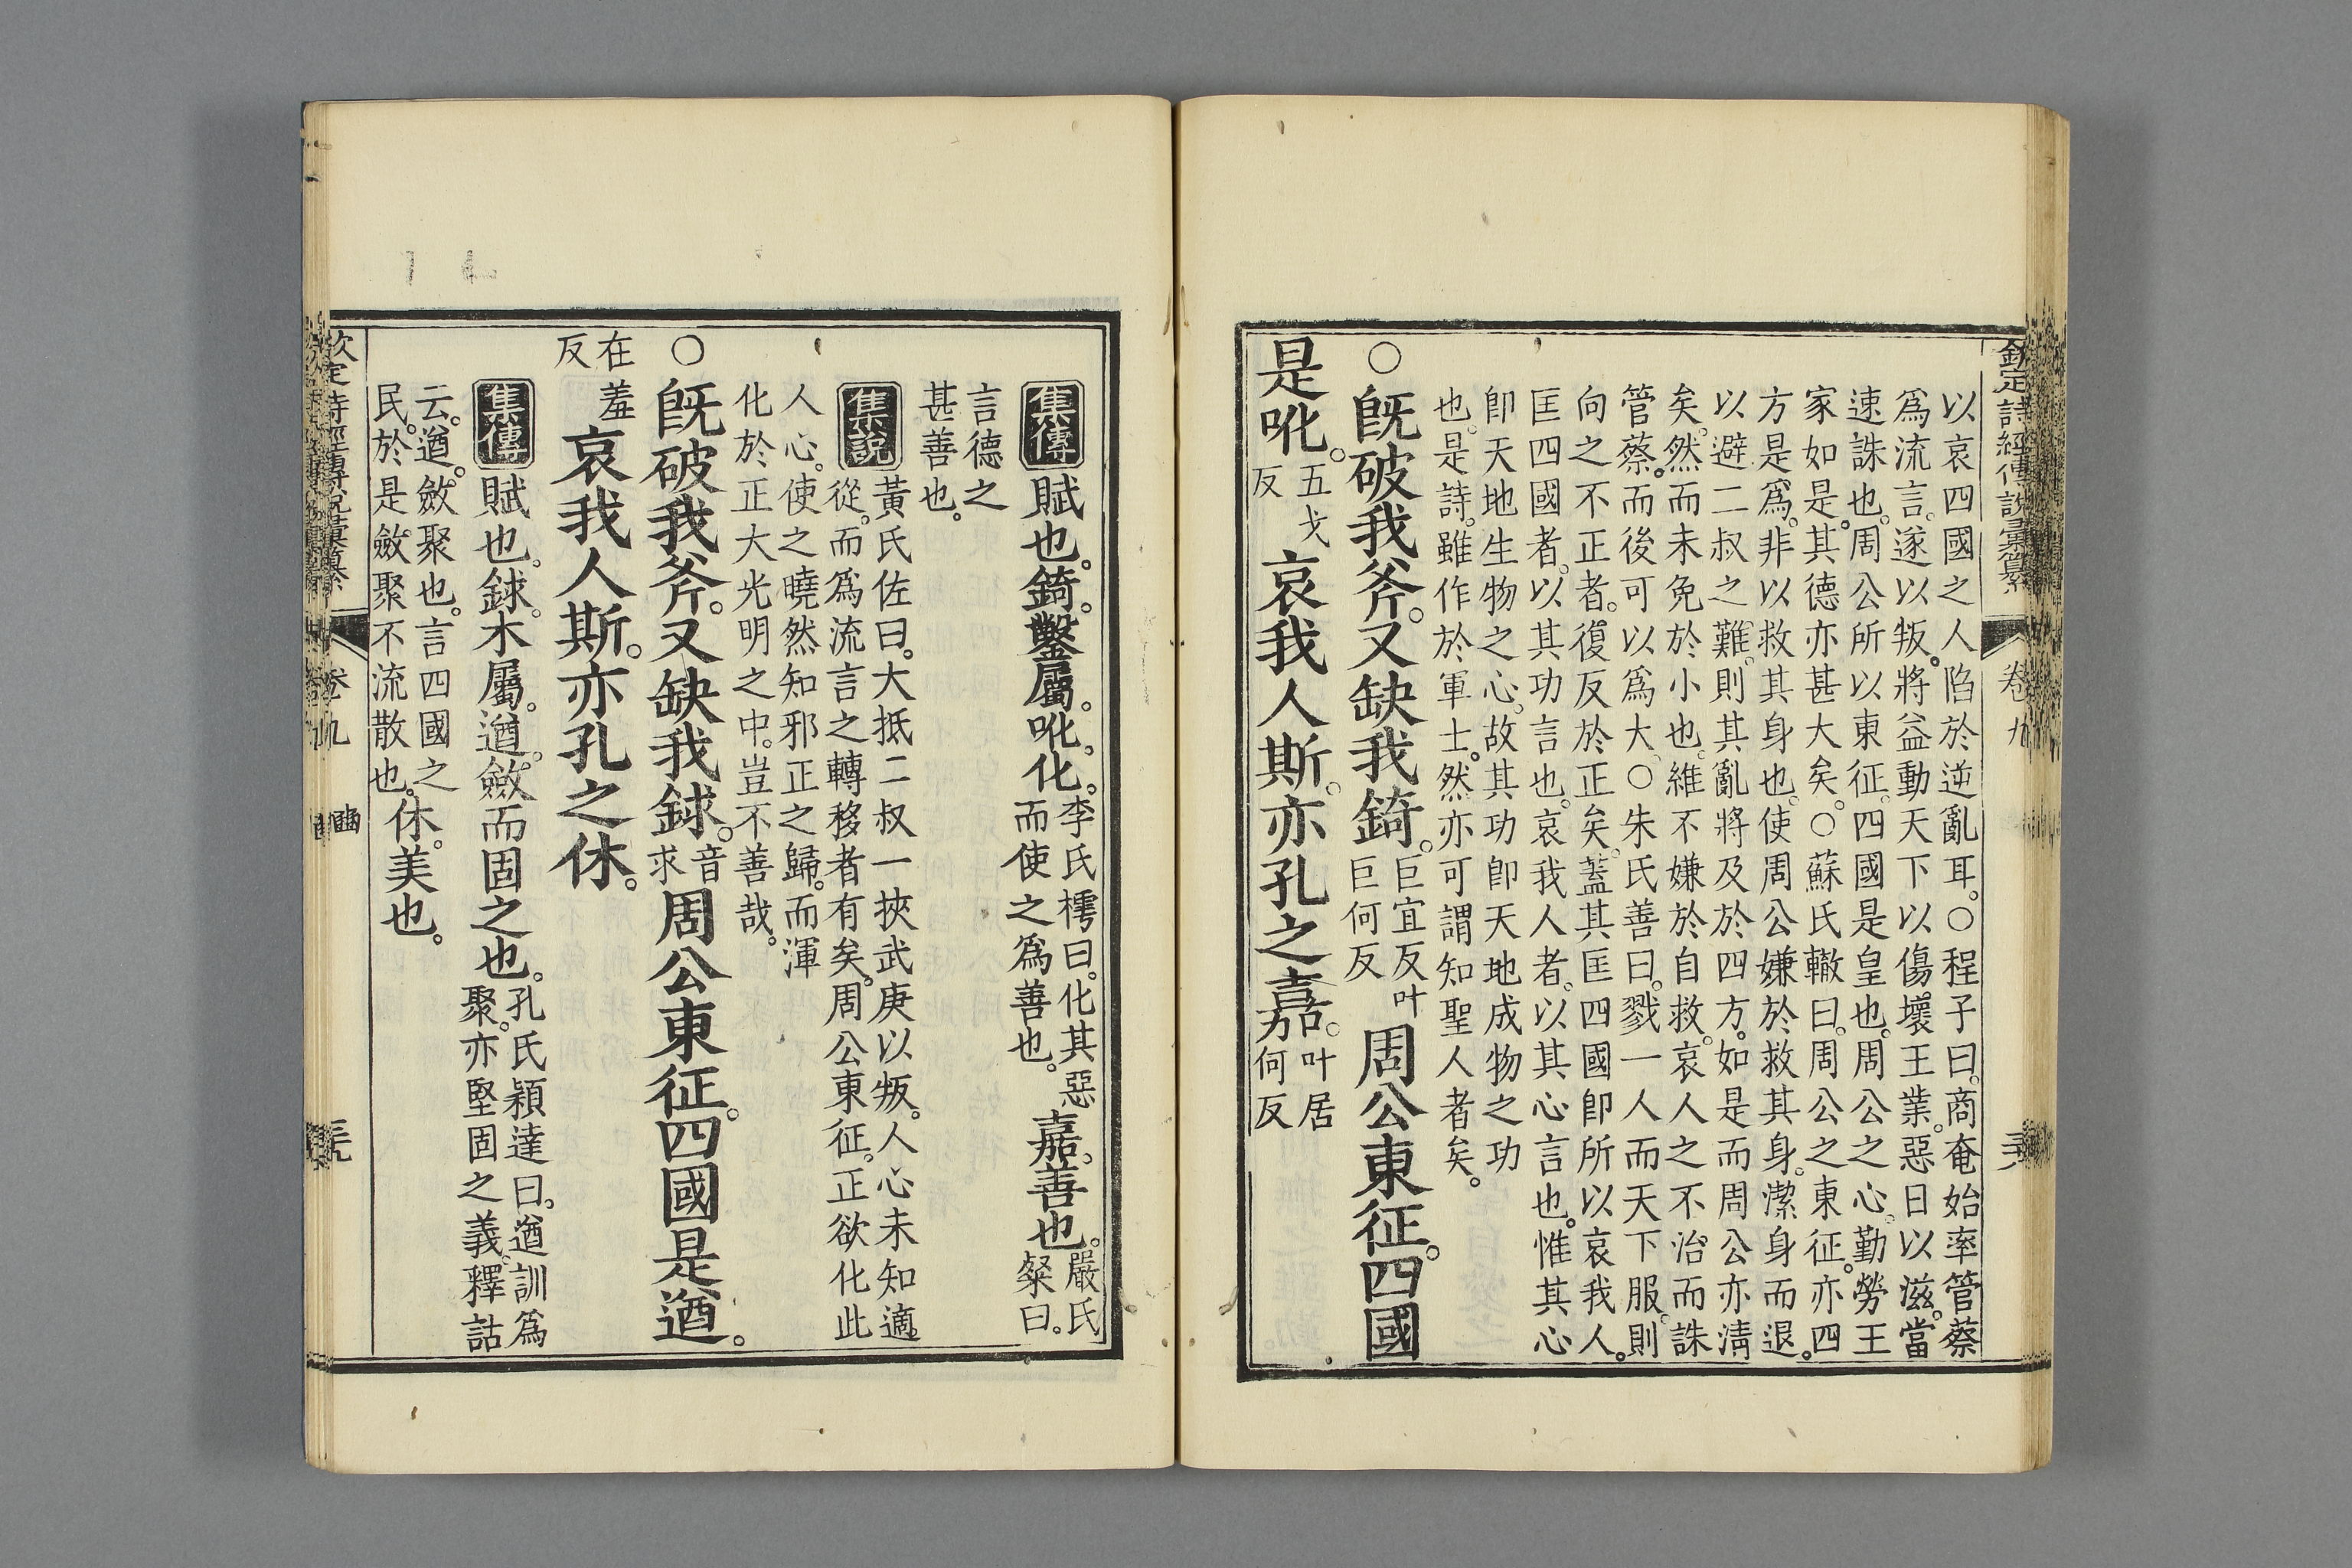 欽定詩經傳說彙纂 卷九
以哀四國之人陷於逆亂耳。○程子曰。商奄始率管蔡
爲流言。遂以叛。將益動天下以傷。壞王業。惡日以滋。當
速誅也。周公所以東征。四國是皇也。周公之心。勤勞王
家如是。其德亦甚大矣。○蘇氏轍曰。周公之東征。亦四
方是爲。非以救其身也。使周公嫌於救其身。潔身而退。
以避二叔之難。則其亂將及於四方。如是而周公亦淸
矣。然而未免於小也。維不嫌於自救。哀人之不治而誅
管蔡。而後可以爲大。○朱氏善曰。戮一人而天下服。則
向之不正者。復反於正矣。蓋其匡四國卽所以哀我人。
匡四國者。以其功言也。哀我人者。以其心言也。惟其心
卽天地生物之心。故其功卽天地成物之功
也。是詩。雖作於軍士。然亦可謂知聖人者矣。
○旣破我斧。又缺我錡。巨宜反叶巨何反周公東征。四國
是吪。五戈反哀我人斯。亦孔之嘉。叶居何反
集傳賦也。錡。鑿屬。吪。化。李氏樗曰。化其惡而使之爲善也。嘉。善也。嚴氏粲曰。
言德之甚善也。
集說黃氏佐曰。大抵二叔一挾武庚以叛。人心未知適
從。而爲流言之轉移者有矣。周公東征。正欲化此
人心。使之曉然知邪正之歸。而渾
化於正大光明之中。豈不善哉。
○旣破我斧。又缺我銶。音求周公東征。四國是遒。
在羞反哀我人斯。亦孔之休。
集傳賦也。銶。木屬。遒。斂而固之也。孔氏穎達曰。遒訓爲聚。亦堅固之義。釋詁
云。遒。斂聚也。言四國之民。於是斂聚不流散也。休。美也。
欽定詩經傳說彙纂 卷九 豳